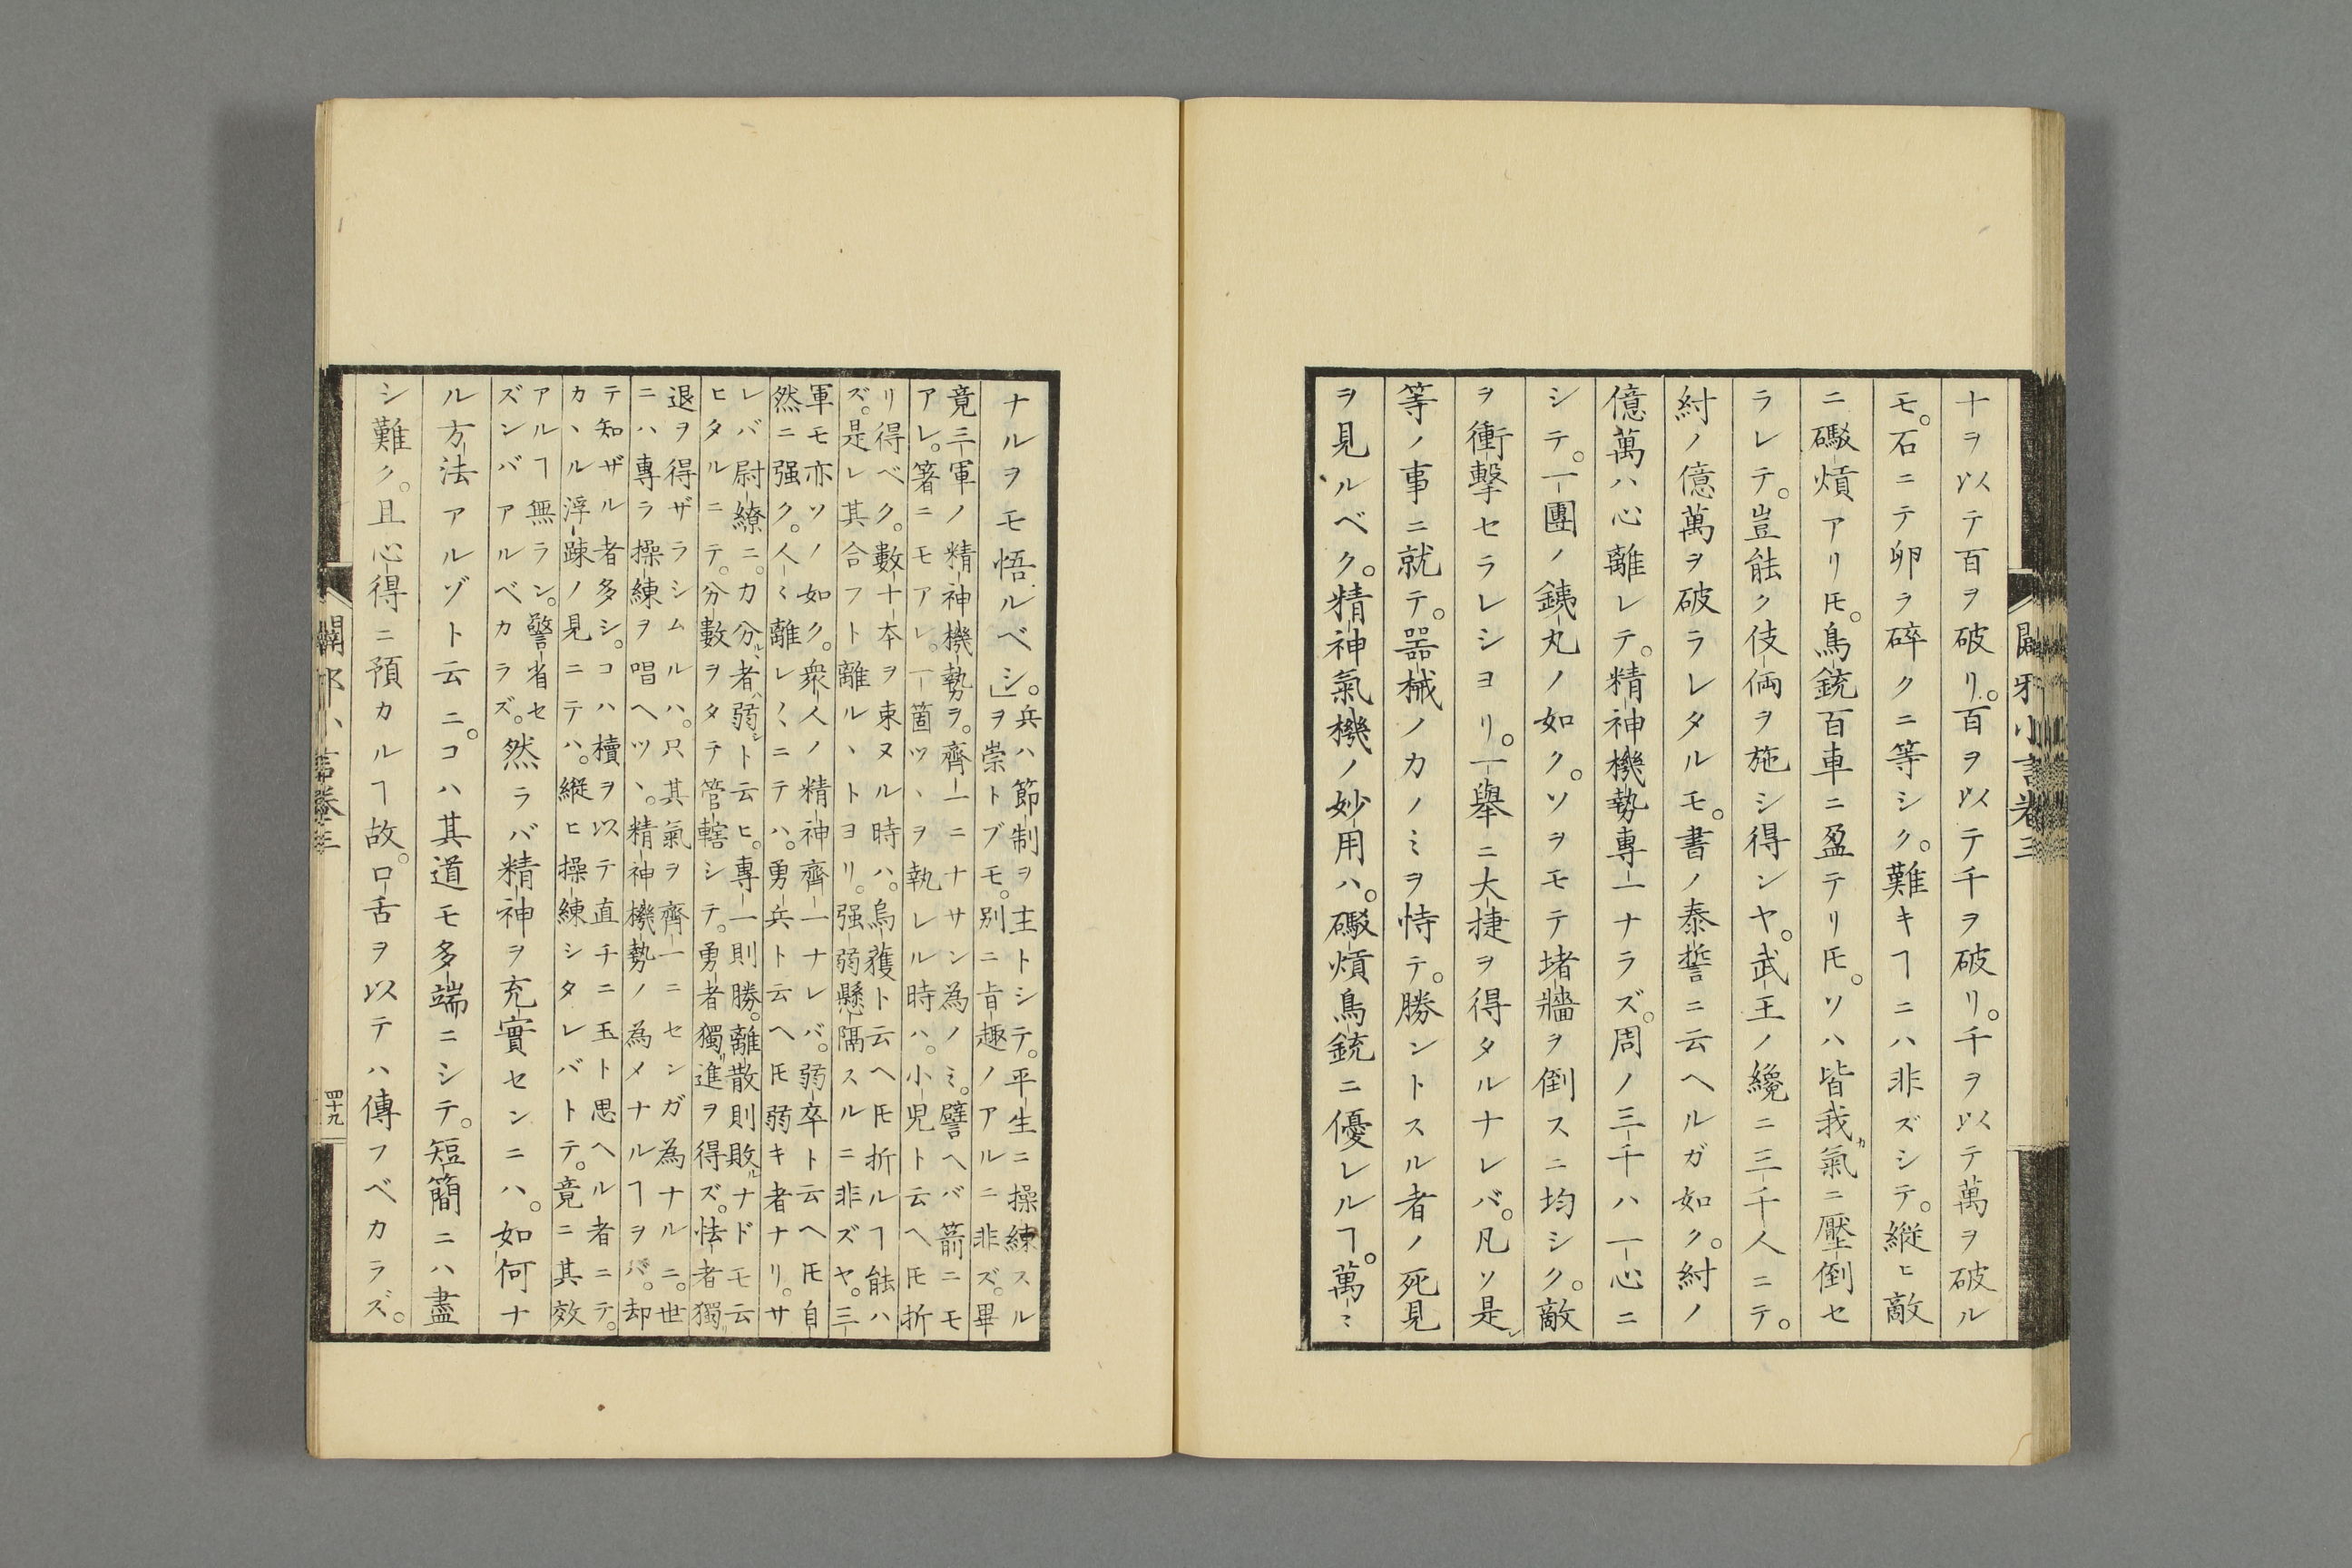 闢邪小言卷三
十ヲ以テ百ヲ破リ。百ヲ以テ千ヲ破リ。千ヲ以テ萬ヲ破ル
モ。石ニテ卵ヲ碎クニ等シク。難キヿニハ非ズシテ。縱ヒ敵
ニ礮熕アリ𪜈。鳥銃百車ニ盈テリ𪜈。ソハ皆我カ氣ニ壓倒セ
ラレテ。豈能ク伎倆ヲ施シ得ンヤ。武王ノ纔ニ三千人ニテ。
紂ノ億萬ヲ破ラレタルモ。書ノ泰誓ニ云ヘルガ如ク。紂ノ
億萬ハ心離レテ。精神機勢專一ナラズ。周ノ三千ハ一心ニ
シテ。一團ノ銕丸ノ如ク。ソヲモテ堵牆ヲ倒スニ均シク。敵
ヲ衝擊セラレシヨリ。一舉ニ大捷ヲ得タルナレバ。凡ソ是レ
等ノ事ニ就テ。器械ノカノミヲ恃テ。勝ントスル者ノ死見
ヲ見ルベク。精神氣機ノ妙用ハ。礮熕鳥銃ニ優レルヿ。萬〻
ナルヲモ悟ルベシ。」兵ハ節制ヲ主トシテ。平生ニ操練スル
ヲ崇トブモ。別ニ㫖趣ノアルニ非ズ。畢
竟三軍ノ精神機勢ヲ。齊一ニナサン為ノミ。譬ヘバ箭ニモ
アレ。箸ニモアレ。一箇ツヽヲ執レル時ハ。小兒ト云ヘ𪜈折
リ得ベク。數十本ヲ束ヌル時ハ。烏獲ト云ヘ𪜈折ルヿ能ハ
ズ。是レ其合フト離ルヽトヨリ。强弱懸隔スルニ非ズヤ。三
軍モ亦ソノ如ク。衆人ノ精神齊一ナレバ。弱卒ト云ヘ𪜈自
然ニ强ク。人〻離レ〳〵ニテハ。勇兵ト云ヘ𪜈弱キ者ナリ。サ
レバ尉繚ニ。カ分ルヽ者ハ弱シト云ヒ。專一則勝。離散則敗ルナドモ云
ヒタルニテ。分數ヲタテ管轄シテ。勇者獨リ進ヲ得ズ。怯者獨リ
退ヲ得ザラシムルハ。只其氣ヲ齊一ニセンガ為ナルニ。世
ニハ專ラ操練ヲ唱ヘツヽ。精神機勢ノ為メナルヿヲバ。却
テ知ザル者多シ。コハ櫝ヲ以テ直チニ玉ト思ヘル者ニテ。
カヽル浮疎ノ見ニテハ。縱ヒ操練シタレバトテ。竟ニ其效
アルヿ無ラン。警省セ
ズンバアルベカラズ。然ラバ精神ヲ充實センニハ。如何ナ
ル方法アルゾト云ニ。コハ其道モ多端ニシテ。短簡ニハ盡
シ難ク。且心得ニ預カルヿ故。口舌ヲ以テハ傳フベカラズ。
闢邪小言卷三
四十九